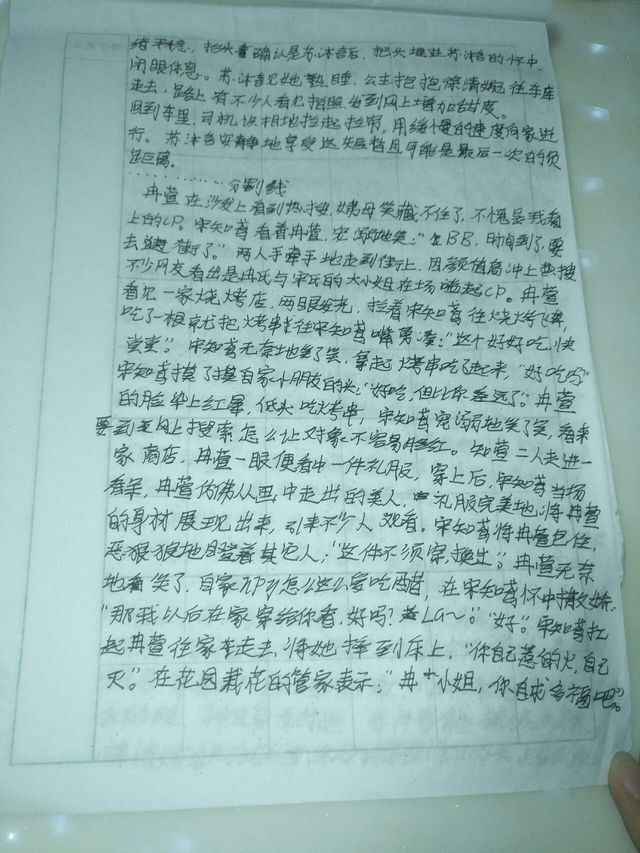 绪不稳，抬头看确认是苏沐音后，把头埋进苏沐音的怀中，
闭眼休息。苏沐音见她熟睡，公主抱抱徐清婉往车库
走去，路上有不少人看见拍照发到网上增加甜度。
回到车里，司机识相地拉起拉帘，用缓慢的速度向家进
行。苏沐音安静地享受这短暂且可能是最后一次的负
距离。
…………分割线
冉萱在沙发上看到热搜，姨母笑藏不住了，不愧是我看
上的CP。宋知茑看着冉萱，宠溺地笑：“BB，时间到了，要
去逛街了。”两人手牵手地走到街上，因颜值高冲上热搜，
不少网友看出是冉氏与宋氏的大小姐在场嗑起CP。冉萱
看见一家烧烤店，两眼发光，拉着宋知茑往烧烤飞奔，
吃了一根就把烤串往宋知茑嘴旁凑：“这个好好吃，快
尝尝”。宋知茑无奈地笑了笑，拿起烤串吃了起来，“好吃吗”
宋知茑摸了摸自家小朋友的头：“好吃，但比你差远了”。冉萱
的脸染上红晕，低头吃烤串，宋知茑宠溺地笑了笑，看来
要到网上搜索怎么让对象不容易脸红。知萱二人走进一
家商店，冉萱一眼便看中一件礼服，穿上后，宋知茑当场
看呆，冉萱仿佛从画中走出的美人，礼服完美地将冉萱
的身材展现出来，引来不少人观看。宋知茑将冉萱包住，
恶狠狠地瞪着其它人：“这件不须穿，换出”。冉萱无奈
地笑了，自家怎么这么爱吃醋，在宋知茑怀中撒娇：
“那我以后在家穿给你看，好吗？La～”。“好”。宋知茑拉
起冉萱往家车走去，将她摔到床上，“你自己惹的火，自己
灭”。在花园栽花的管家表示：“冉小姐，你自求多福吧”。